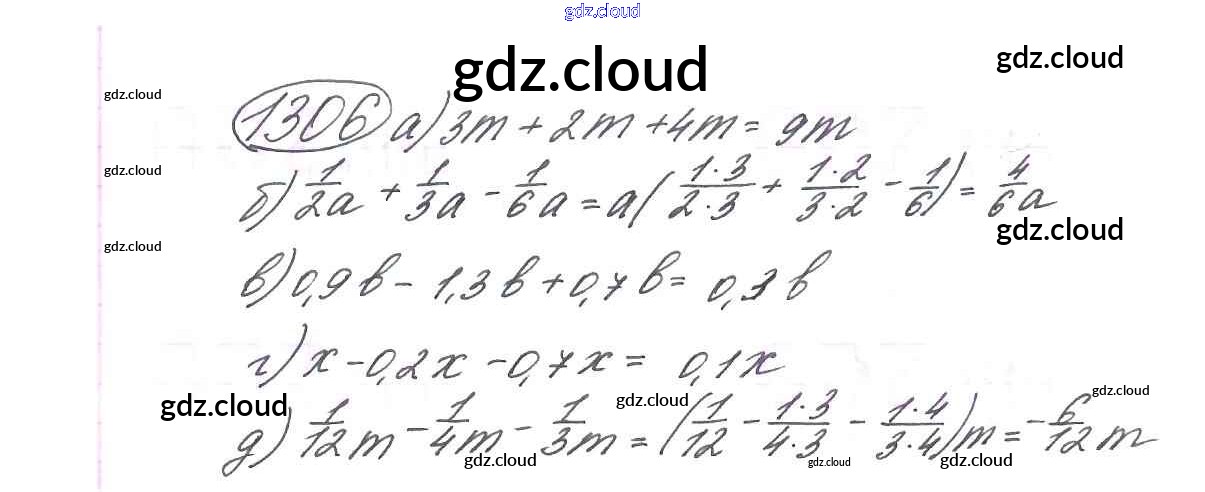 gdz.cloud
gdz.cloud
gdz.cloud
gdz.cloud
1306 а) 3m + 2m + 4m = 9m
gdz.cloud
б) 1/2 a + 1/3 a - 1/6 a = a( 1·3/2·3 + 1·2/3·2 - 1/6 ) = 4/6 a
gdz.cloud
gdz.cloud
в) 0,9b - 1,3b + 0,7b = 0,3b
г) x - 0,2x - 0,7x = 0,1x
gdz.cloud
gdz.cloud
gdz.cloud
д) 1/12 m - 1/4 m - 1/3 m = ( 1/12 - 1·3/4·3 - 1·4/3·4 )m = - 6/12 m
gdz.cloud
gdz.cloud
gdz.cloud